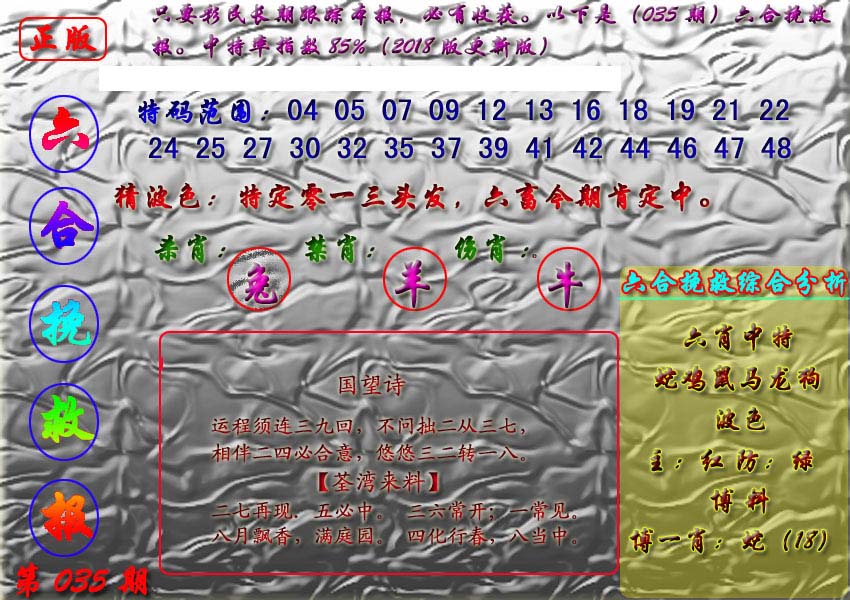 正版
只要彩民长期跟踪本报，必有收获。以下是（035期）六合挽救
报。中特率指数85%（2018版更新版）
六合挽救报
第035期
特码范围：04 05 07 09 12 13 16 18 19 21 22
24 25 27 30 32 35 37 39 41 42 44 46 47 48
猜波色：特定零一三头发，六畜今期肯定中。
杀肖：兔 禁肖：羊 伤肖：牛
国望诗
运程须连三九回，不问拙二从三七，
相伴二四必合意，悠悠三二转一八。
【荃湾来料】
二七再现．五必中。 三六常开；一常见。
八月飘香，满庭园。 四化行春，八当中。
六合挽救综合分析
六肖中特
蛇鸡鼠马龙狗
波色
主：红 防：绿
博料
博一肖：蛇（18）